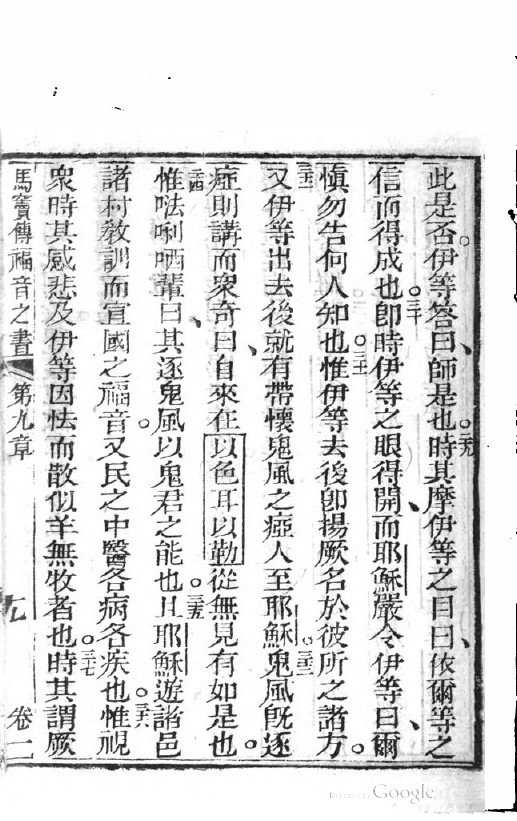 此是否。伊等答曰、師是也。二九時其摩伊等之目曰、依爾等之
信而得成也。三十卽時伊等之眼得開而耶穌嚴令伊等曰、爾
愼勿吿何人知也。三一惟伊等去後卽揚厥名於彼所之諸方。
三二又伊等出去後就有帶懷鬼風之瘂人至耶穌。三三鬼風旣逐
瘂則講而衆奇曰、自來在以色耳以勒從無見有如是也。
三四惟㗭唎哂輩曰、其逐鬼風以鬼君之能也。三五且耶穌遊諸邑
諸村敎訓而宣國之福音。又民之中醫各病各疾也。三六惟視
衆時其感悲及伊等因怯而散似羊無牧者也。三七時其謂厥
馬竇傳福音之書 第九章 九 卷一
Digitized by Google